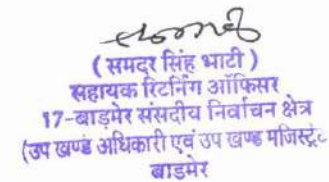 ( समदर सिंह भाटी )
सहायक रिटर्निंग ऑफिसर
17-बाड़मेर संसदीय निर्वाचन क्षेत्र
(उप खण्ड अधिकारी एवं उप खण्ड मजिस्ट्रेट
बाडमेर